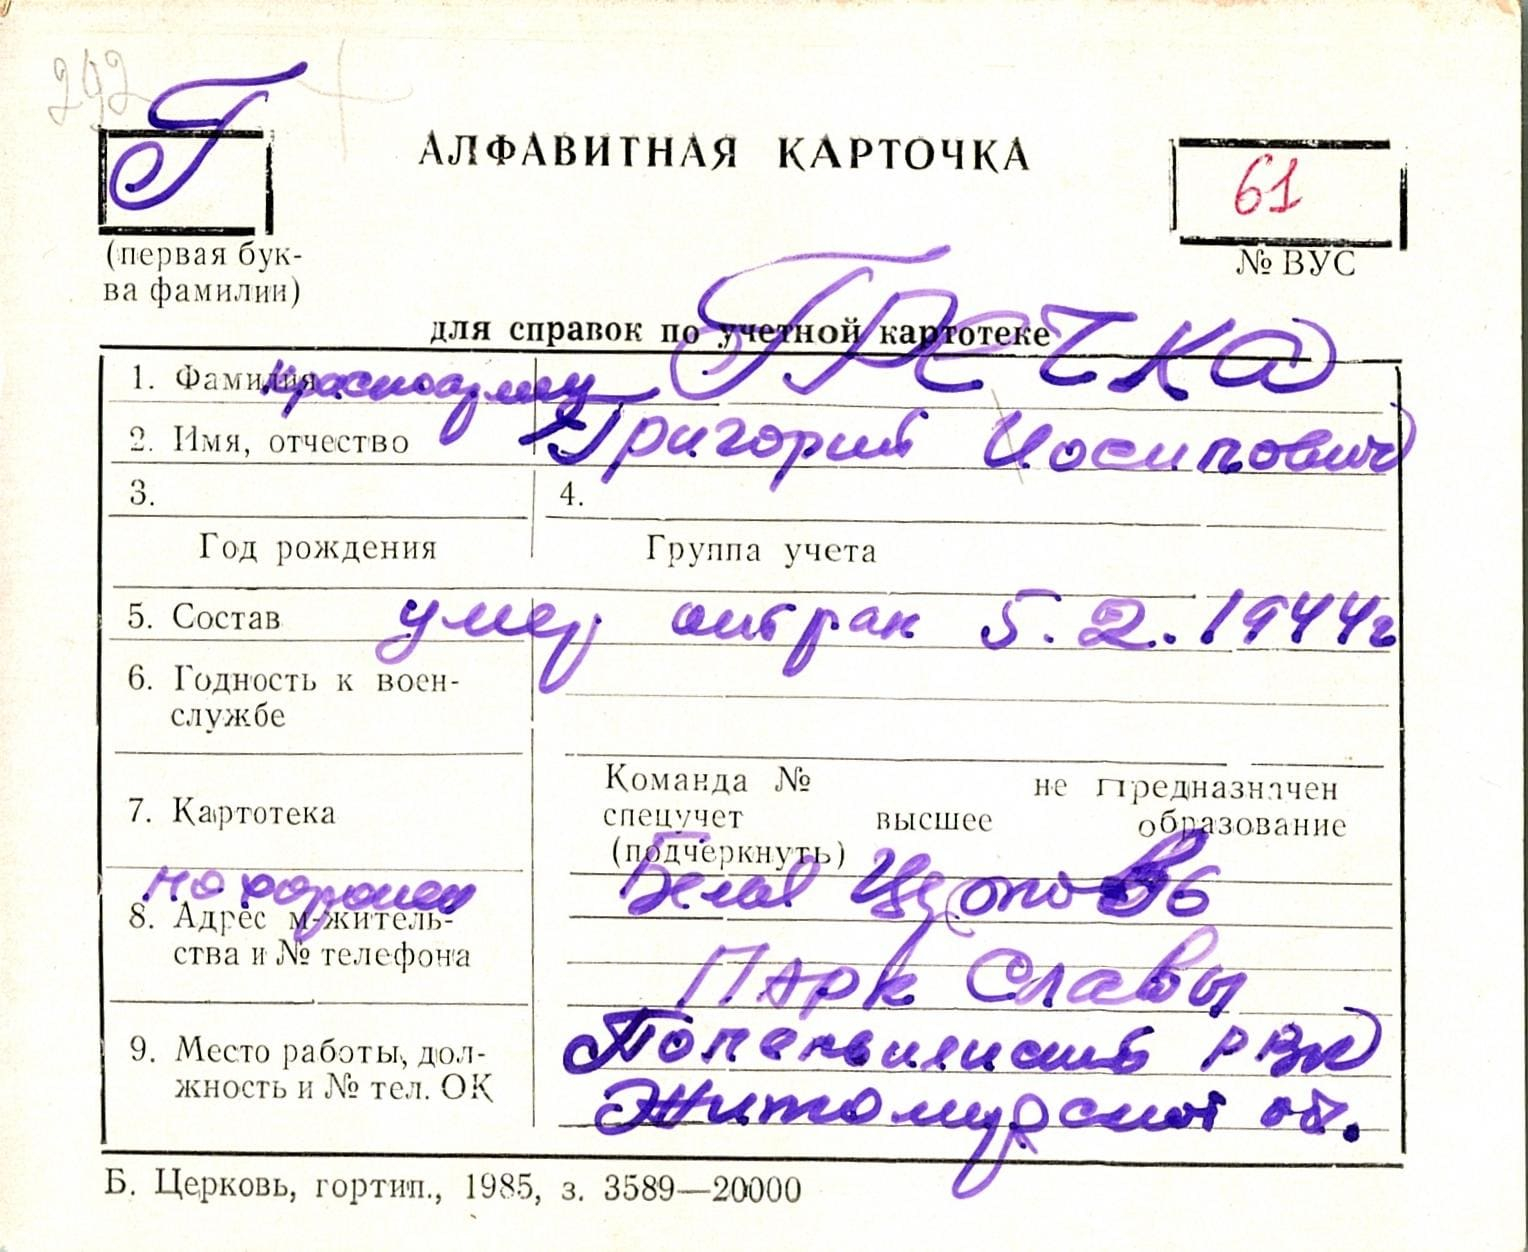 292
Г
АЛФАВИТНАЯ КАРТОЧКА
61
(первая бук-
ва фамилии)
№ ВУС
для справок по учетной картотеке
1. Фамилия ГРЕЧКА
2. Имя, отчество Григорий Иосипович
3. 4.
Год рождения Группа учета
5. Состав умер 5.2.1944г
6. Годность к воен-
службе
Команда № не предназначен
7. Картотека
спецучет высшее образование
(подчеркнуть)
похоронен Белая Церковь
8. Адрес м-житель-
ства и № телефона
Парк Славы
9. Место работы, дол-
жность и № тел. ОК
РВК
Житомирской об.
Б. Церковь, гортип., 1985, з. 3589—20000